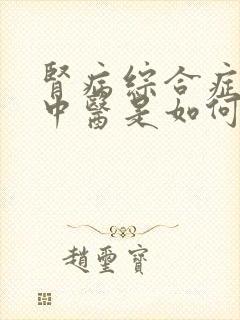 腎病綜合症
中醫是如何
趙璽寶